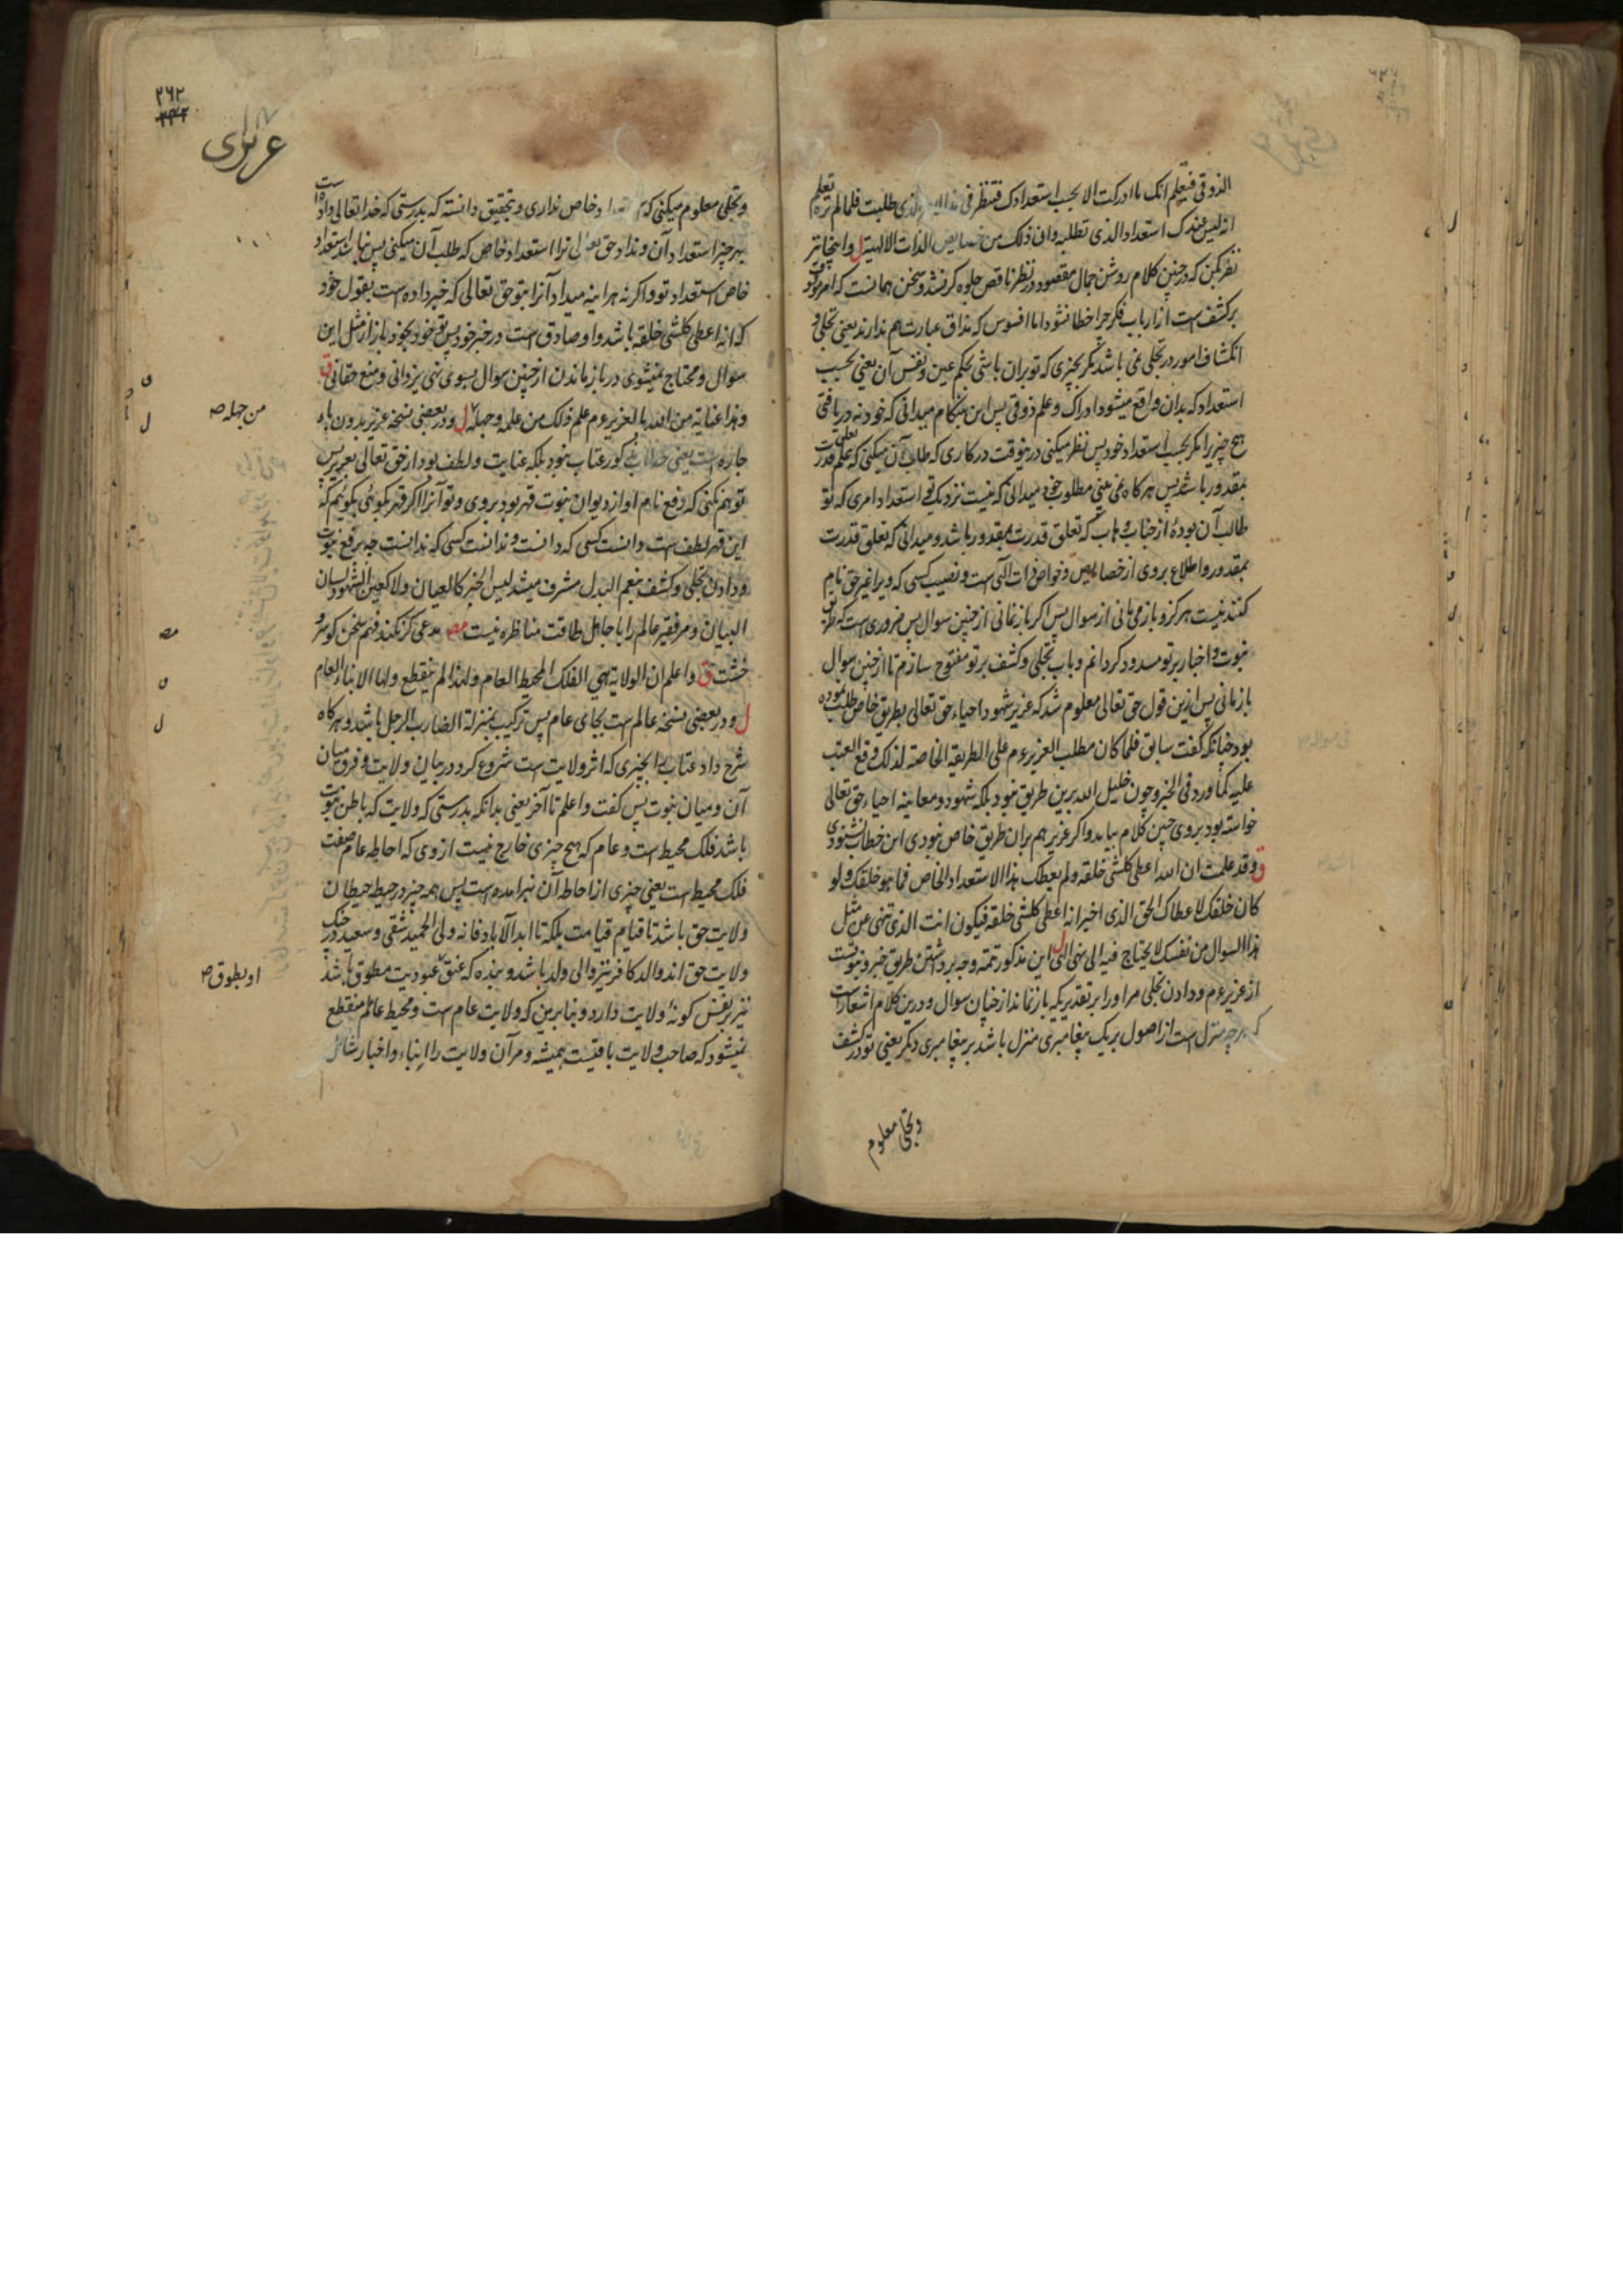 الذوقی فیعلم انک ما ادرکت الا بحسب استعدادک فتنظر فی هذا الامر الذی طلبت فلما لم تره تعلم
انه لیس عندک استعداد الذی تطلبه وان ذلک من خصایص الذات الالهیة ل و اینجا نیز
نظر بکن که در چنین کلام روشن جمال مقصود در نظر ناقص جلوه گر نشد و سخن همانست که امر موقوف
بر کشف است از ارباب فکر چرا خطا نشود اما افسوس که مذاق عبارت هم ندارند یعنی تجلی و
انکشاف امور در تجلی نمی باشد مگر بچیزی که تو بران باشی بحکم عین و نفس آن یعنی بحسب
استعداد که بدان واقع میشود ادراک و علم ذوقی پس این هنگام میدانی که خود نه دریافتی
هیچ چیز را مگر بحسب استعداد خود پس نظر میکنی درینوقت در کاری که طلب آن میکنی که علم تعلق قدرت
بمقدور باشد پس هرگاه نمی بینی مطلوب خود میدانی که نیست نزدیک تو استعداد امری که تو
طالب آن بودهٔ از جناب وهاب که تعلق قدرت بمقدور باشد و میدانی که تعلق قدرت
بمقدور و اطلاع بروی از خصایص و خواص ذات الهی است و نصیب کسی که ویرا غیر حق نام
کنند نیست هرگز و باز می مانی از سوال پس اگر باز نمانی از چنین سوال پس ضروری است که طریق
نبوت و اخبار بر تو مسدود گردانم و باب تجلی و کشف بر تو مفتوح سازم تا از چنین سوال
باز مانی پس ازین قول حق تعالی معلوم شد که عزیر شهود احیاء حق تعالی بطریق خاص طلب نموده
بود چنانکه گفت سابق فلما کان مطلب العزیر عم علی الطریقة الخاصة لذلک وقع العتب
علیه کما ورد فی الخبر و چون خلیل الله برین طریق نبود بلکه شهود و معاینه احیاء حق تعالی
خواسته بود بروی چنین کلام نیامد و اگر عزیر هم بران طریق خاص نبودی این خطاب نشنودی
ق وقد علمت ان الله اعطی کلشی خلقه ولم یعطک هذا الاستعداد الخاص فما هو خلقک ولو
کان خلقک لاعطاک الحق الذی اخبر انه اعطی کلشی خلقه فیکون انت الذی تنهی عن مثل
هذا السوال من نفسک لا یحتاج فیه الی نهی الهی ل این مذکور تتمه وجه برداشتن طریق خبر و نبوت است
از عزیر عم و دادن تجلی مر او را بر تقدیریکه باز نماند از چنان سوال و درین کلام اشعارست
که هر چه منزل است از اصول بر یک پیغامبری منزل باشد بر پیغامبری دیگر یعنی تو در کشف
وتجلی معلوم
۲۶۲
۲۴۲
عزیری
وتجلی معلوم میکنی که استعداد خاص نداری و بتحقیق دانسته که بدرستی که خدا تعالی داده است
بهر چیز استعداد آن و نداد حق تعالی ترا استعداد خاص که طلب آن میکنی پس نباشد استعداد
خاص استعداد تو و اگر نه هراینه میداد آنرا بتو حق تعالی که خبر داده است بقول خود
که انه اعطی کلشی خلقه باشد و او صادق است در خبر خود پس تو خود بخود باز از مثل این
سوال و محتاج نمیشوی در باز ماندن از چنین سوال بسوی نهی یزدانی و منع حقانی ق
وهذا عنایة من الله بالعزیر عم علم ذلک من علمه وجهله ل و در بعضی نسخه عزیر بدون با
جاره است یعنی خطاب مذکور عتاب نبود بلکه عنایت و لطف بود از حق تعالی بعزیر پس
توهم نکنی که رفع نام او از دیوان نبوت قهر بود بروی و تو آنرا اگر قهر گوئی بگوئیم که
این قهر لطف است دانست کسی که دانست و ندانست کسی که ندانست چه برفع نبوت
و دادن تجلی و کشف بنعم البدل مشرف میشد لیس الخبر کالعیان ولا کعین الشهود لسان
البیان و مر فقیر عالم را با جاهل طاقت مناظره نیست مصر مدعی گر نکند فهم سخن گو سر و
خشت ق واعلم ان الولایة هی الفلک المحیط العام ولهذا لم ینقطع ولها الانباء العام
ل و در بعضی نسخه عالم است بجای عام پس ترکیب بمنزلة الضارب الرجل باشد و هرگاه
شرح داد عتاب را بچیزی که اثر ولایت است شروع کرد در بیان ولایت و فرق میان
آن و میان نبوت پس گفت واعلم تا آخر یعنی بدانکه بدرستی که ولایت که باطن نبوت
باشد فلک محیط است و عام که هیچ چیزی خارج نیست از وی که احاطه عام صفت
فلک محیط است یعنی چیزی از احاطه آن نبرآمده است پس همه چیز در حیطه حیطان
ولایت حق باشد تا قیام قیامت بلکه تا ابد الآباد فانه ولی الحمید شقی و سعید در جنگ
ولایت حق اند والد کافر نیز والی ولد باشد و بنده که عنق عبودیت مطوق باشد
نیز بر نفس گونهٔ ولایت دارد و بنابرین که ولایت عام است و محیط عالم منقطع
نمیشود که صاحب ولایت باقیست همیشه و مر آن ولایت را انباء و اخبار شامل
من جهله صه
او بطوق صه